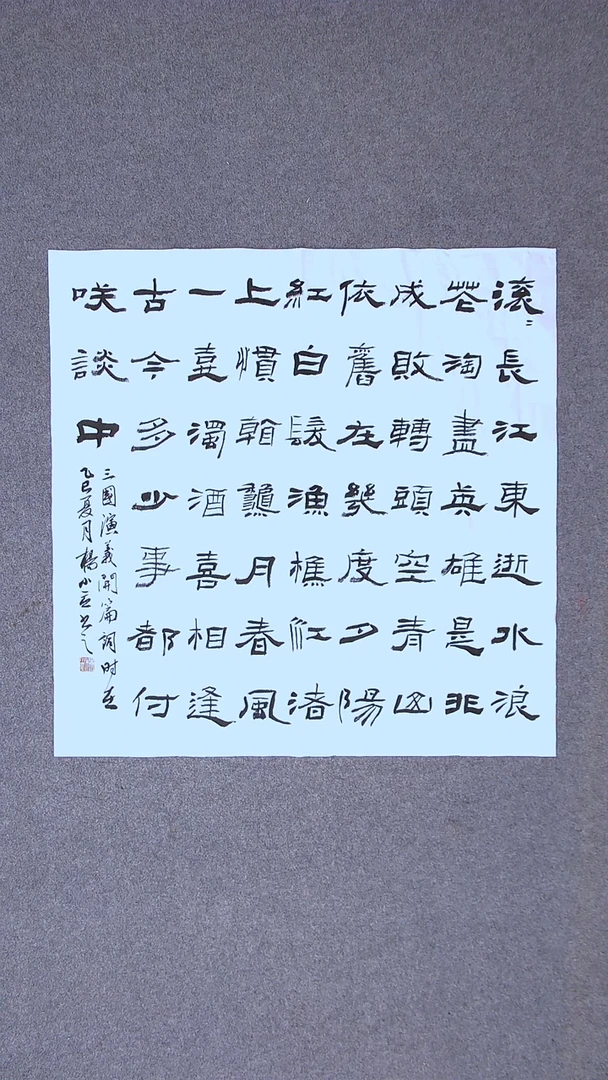 滚〻長江東逝水浪
花淘盡英雄是非
成敗轉頭空青山
依舊在幾度夕陽
紅白髮漁樵江渚
上慣看龝月春風
一壺濁酒喜相逢
古今多少事都付
咲談中
三國演義開篇詞時在
乙巳夏月楊小書之